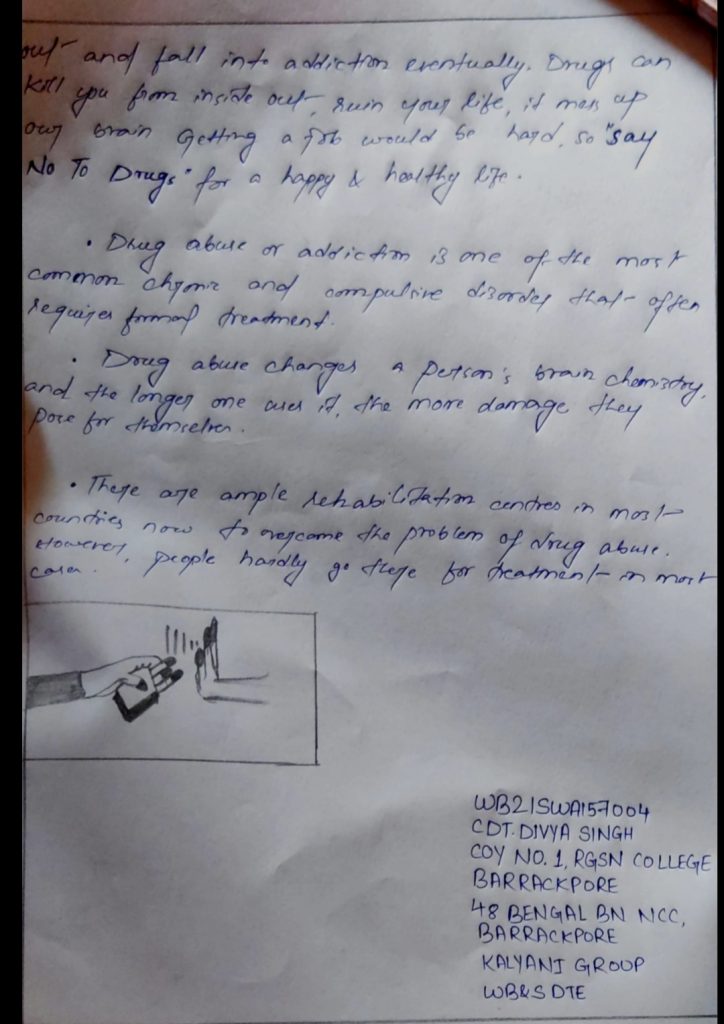 out and fall into addiction eventually. Drugs can
kill you from inside out, ruin your life, it mess up
our brain getting a job would be hard, so "say
No To Drugs" for a happy & healthy life.
• Drug abuse or addiction is one of the most
common chronic and compulsive disorder that often
requires formal treatment.
• Drug abuse changes a person's brain chemistry,
and the longer one uses it, the more damage they
pose for themselves.
• There are ample rehabilitation centres in most
countries now to overcome the problem of drug abuse.
However, people hardly go there for treatment in most
cases.
WB21SWA157004
CDT. DIVYA SINGH
COY NO. 1, RGSN COLLEGE
BARRACKPORE
48 BENGAL BN NCC,
BARRACKPORE
KALYANI GROUP
WB&S DTE